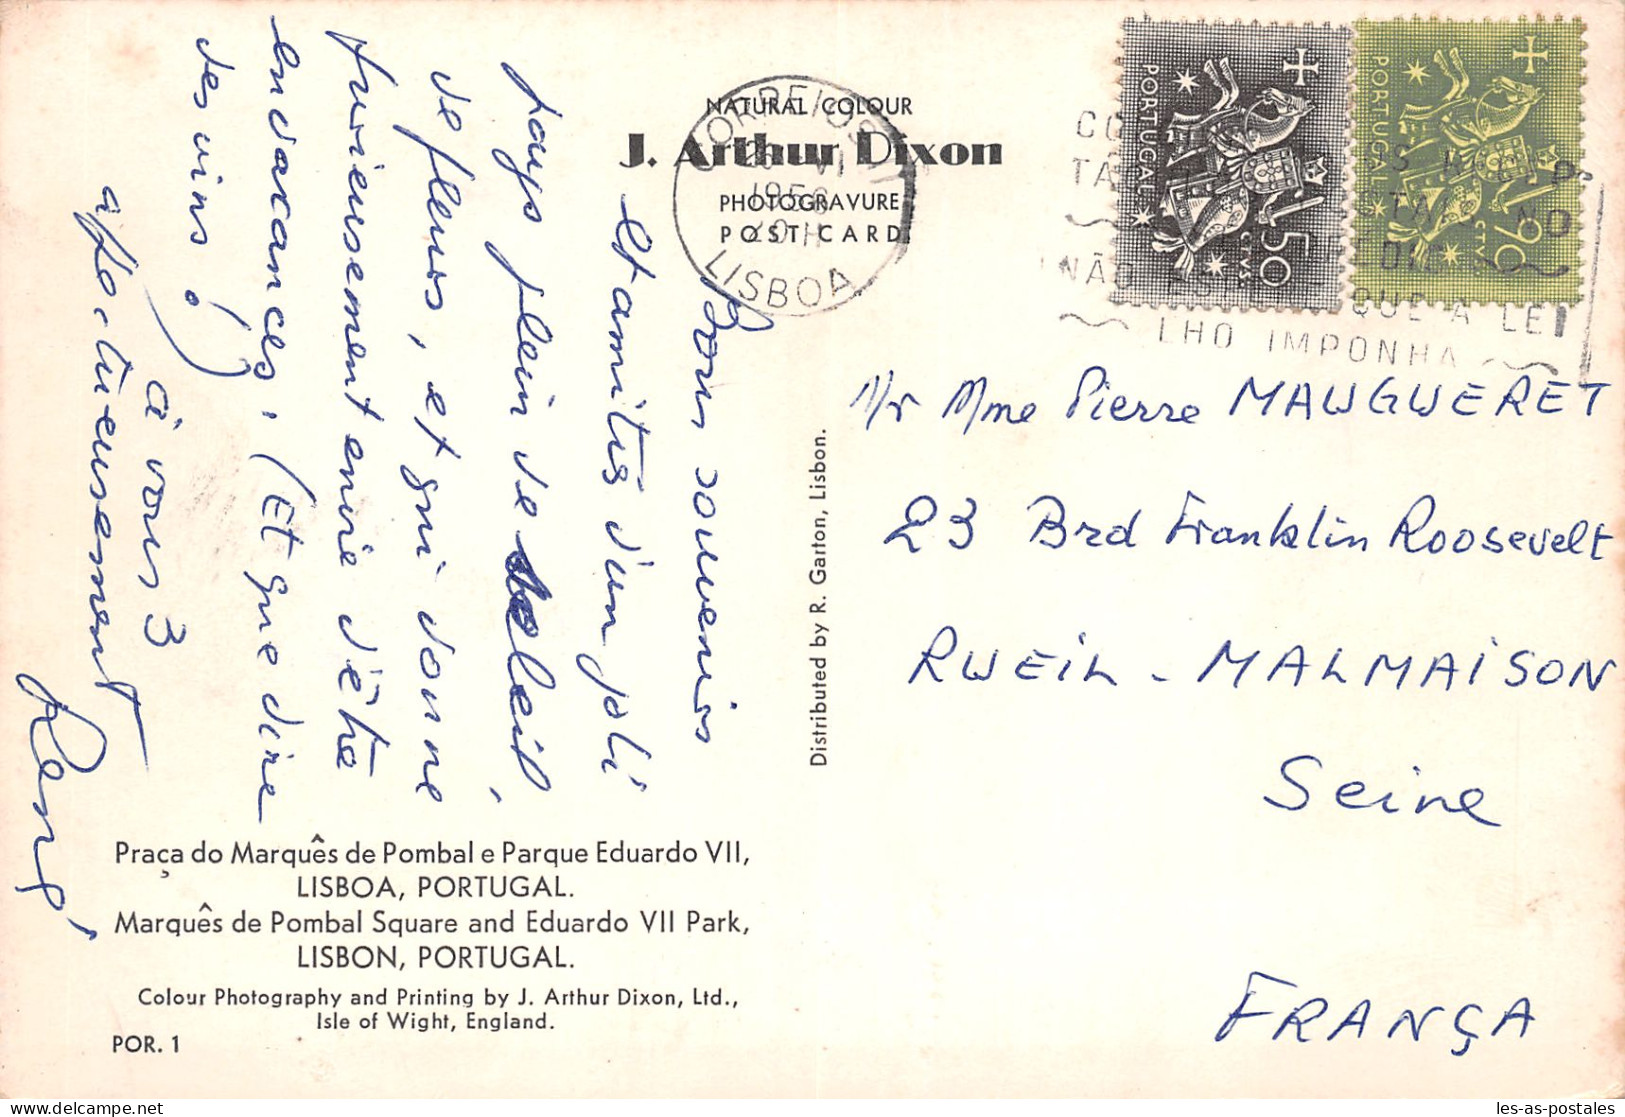 NATURAL COLOUR
J. Arthur Dixon
PHOTOGRAVURE
POST CARD
CORREIOS
1956
LISBOA
PORTUGAL
CTVS 50
PORTUGAL
CTVS 90
NÃO QUE A LEI
LHO IMPONHA
Bons souvenirs
et amitiés d'un joli
pays plein de soleil,
de fleurs, et qui donne
furieusement envie d'être
en vacances. (Et que dire
des vins !)
à vous 3
affectueusement
Distributed by R. Garton, Lisbon.
Mr Mme Pierre MAUGUERET
23 Brd Franklin Roosevelt
RUEIL - MALMAISON
Seine
FRANÇA
Praça do Marquês de Pombal e Parque Eduardo VII,
LISBOA, PORTUGAL.
Marquês de Pombal Square and Eduardo VII Park,
LISBON, PORTUGAL.
Colour Photography and Printing by J. Arthur Dixon, Ltd.,
Isle of Wight, England.
POR. 1
les-as-postales